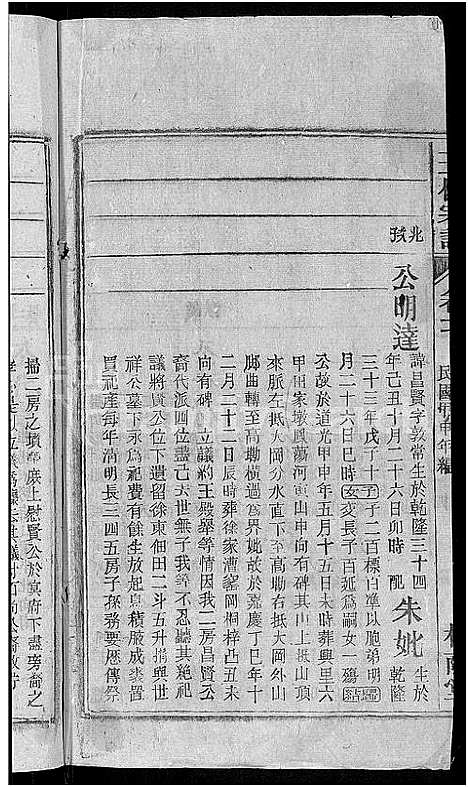 王氏宗譜
民國甲申年編
公明達
諱昌賢字敦常生於乾隆三十四
年己丑十月二十六日卯時
配
朱妣
生於
乾隆
三十三年戊子十
子
子二百標白準以胞弟明
月二十六日巳時
女
長子百延為嗣女一殤
公故於道光甲申年五月十五日未時葬興里六
甲田家墩鳳蕩河黃山申向有碑其山上抵山頂
來脈左抵大岡分水直下至高坳右抵大岡外山
腳曲轉橫過為界妣故於嘉慶丁巳年十
二月二十二日辰時葬徐家漕岡梓凸丑未
向有碑
立議約王殿舉等情因我二房昌賢公
裔代派四位盡已去世無子我等不忍聽其絕祀
議將賢公位下遺留徐東佃田二斗五升捐與世
祥公墓下永為祀費有餘生放起息積服成裘置
買祀產每年清明長三四五房子孫務要歷傳祭
掃二房之墳庶上慰賢公於冥府下盡旁裔之